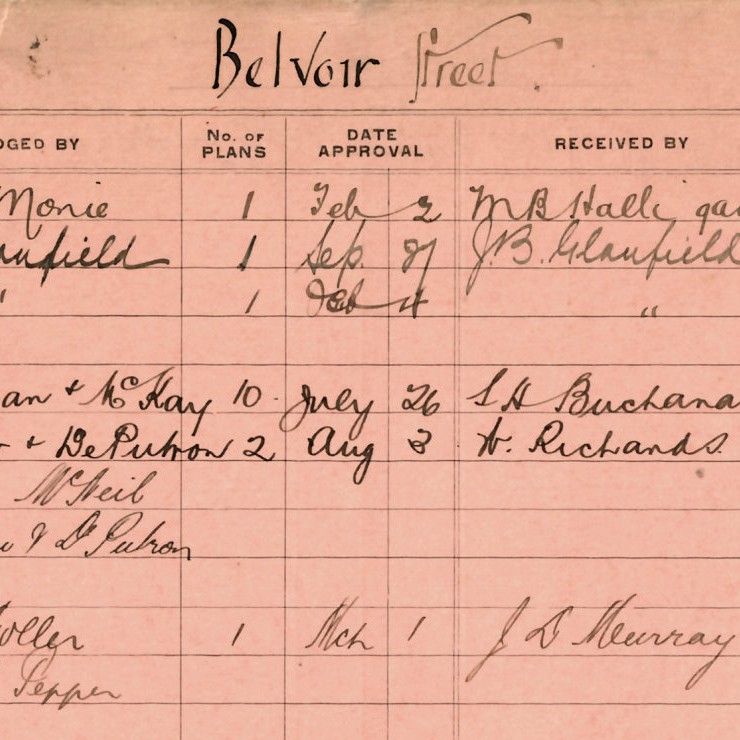 Belvoir Street.
DGED BY No. OF PLANS DATE APPROVAL RECEIVED BY
Monie 1 Feb 2 M B Halli
aufield 1 Sep. J. B. Glanfield
" 1 Feb 4 "
an & McKay 10 July 26 S H Buchana
& De Putron 2 Aug 3 W. Richards.
McNeil
& De Putron
oller 1 Mch 1 J D Murray
Pepper